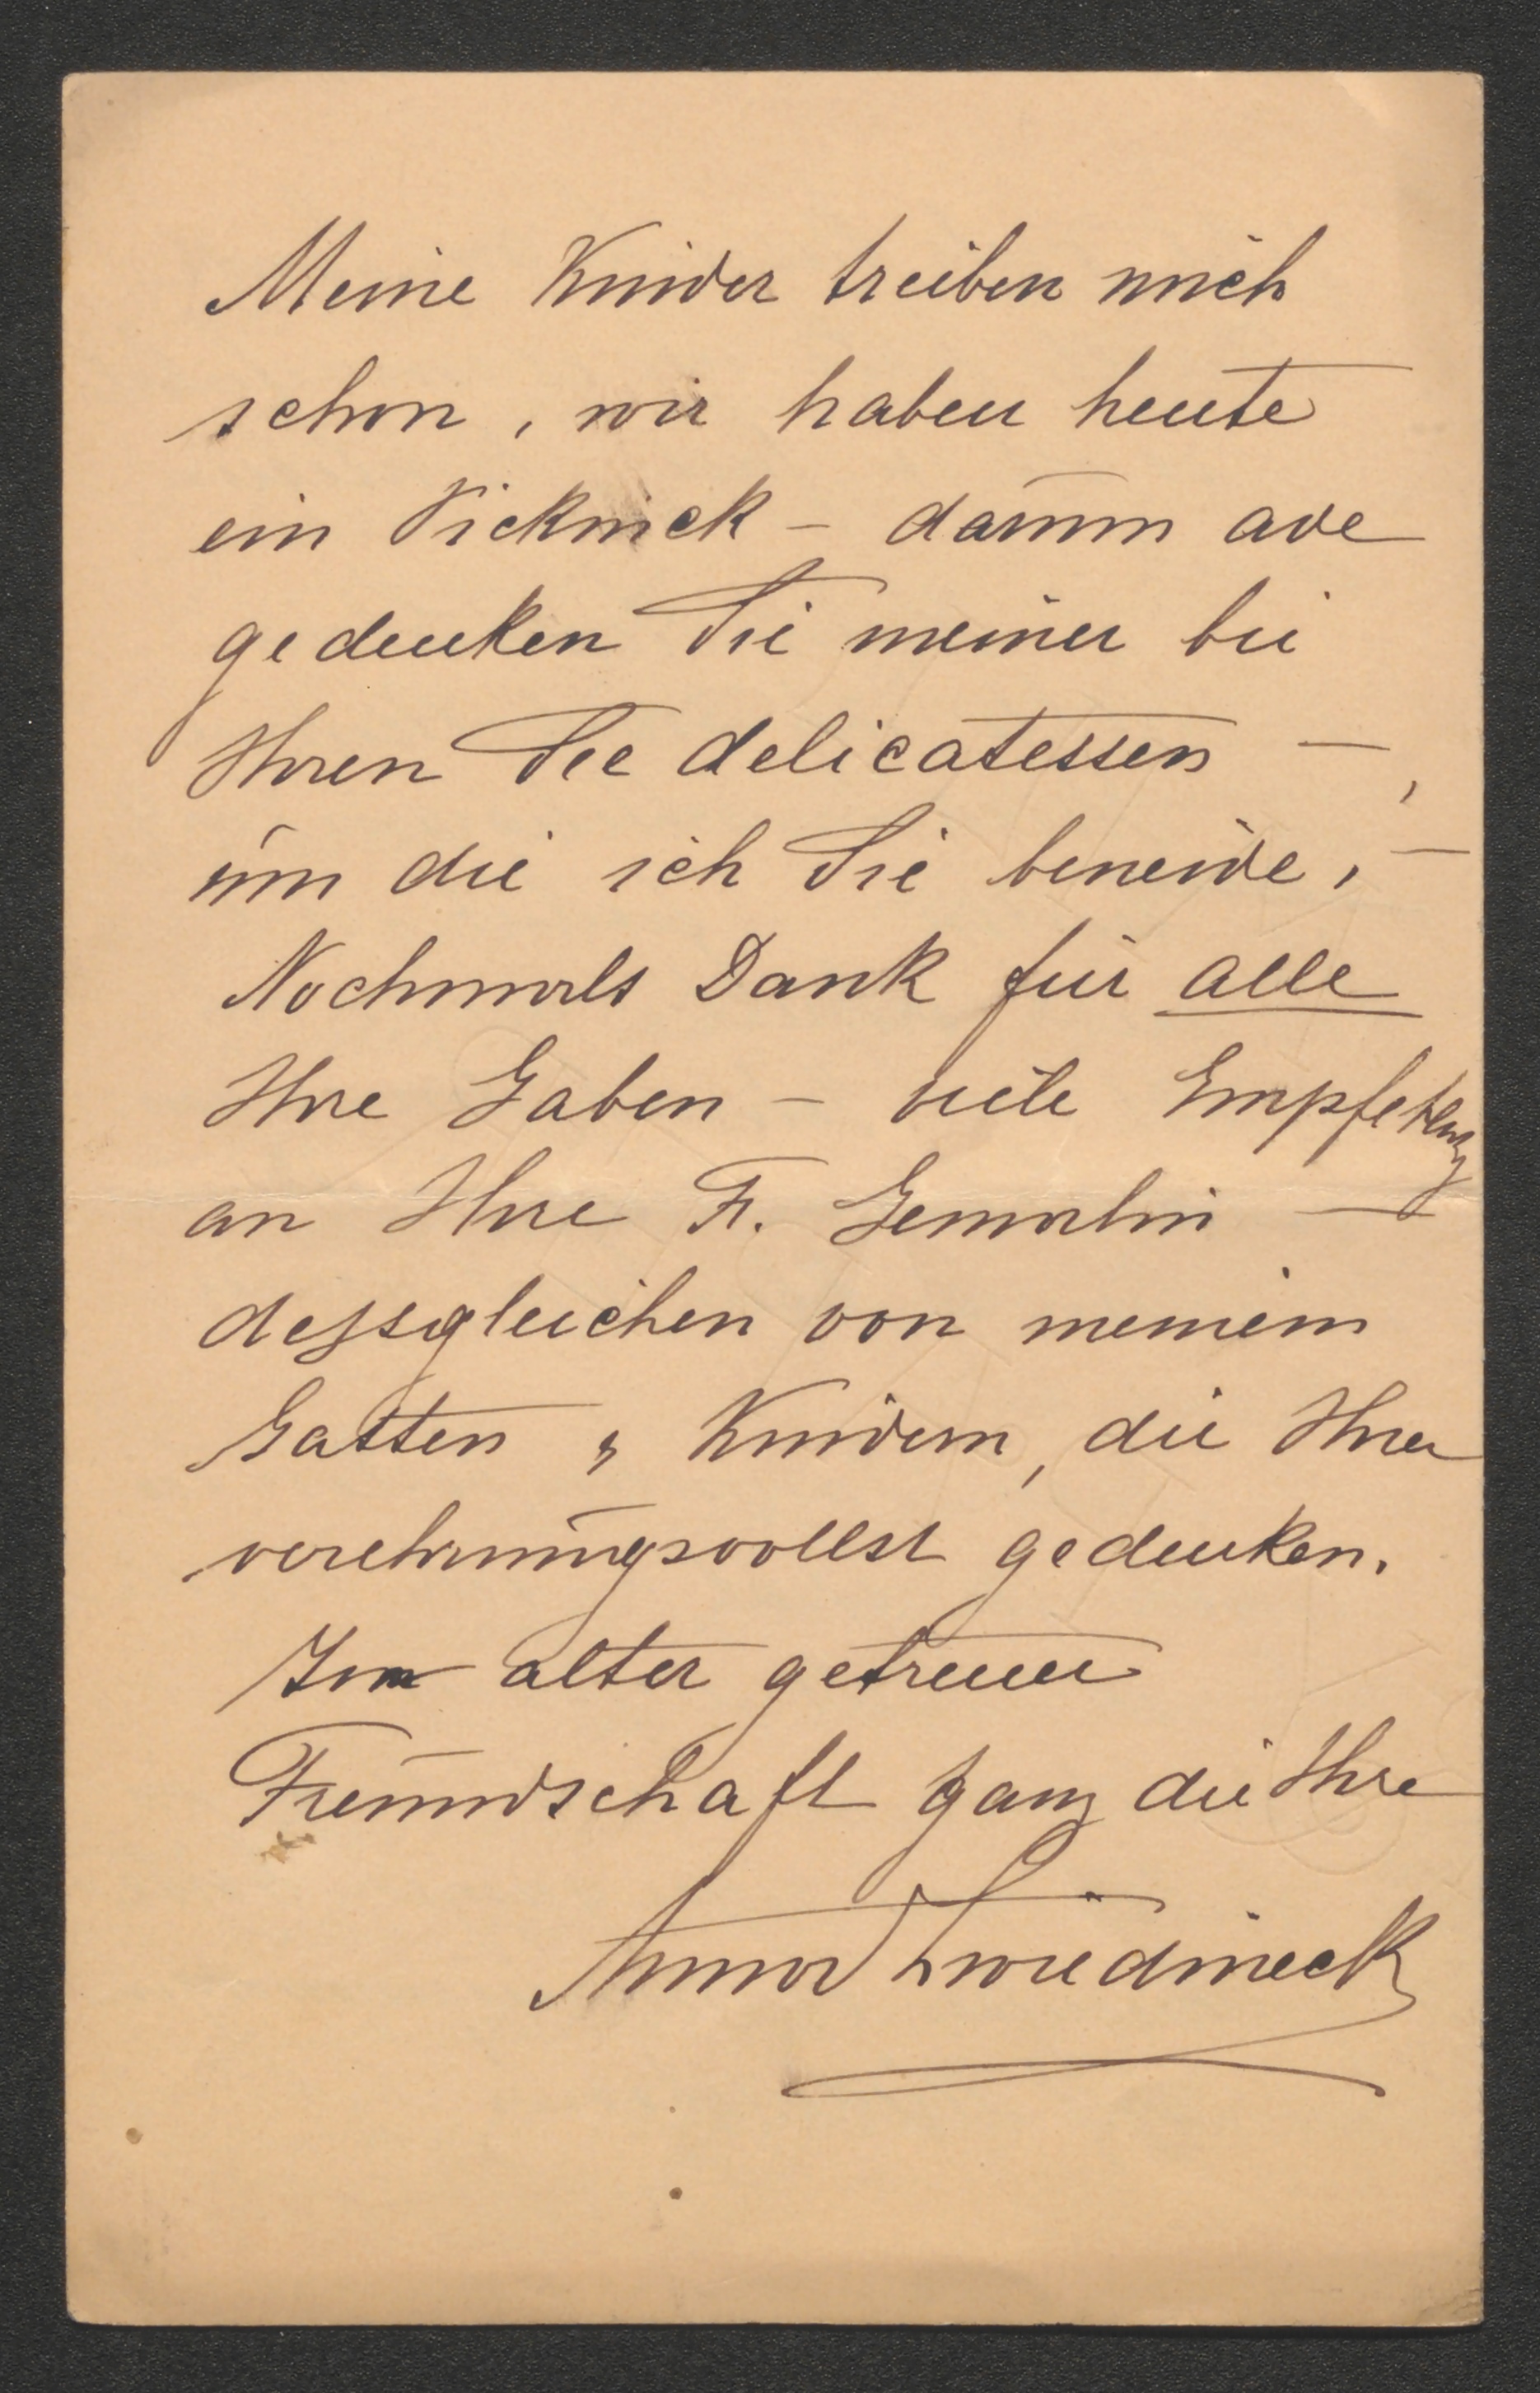 Meine Kinder treiben mich
schon, wir haben heute
ein Picknick – darum ade
gedenken Sie meiner bei
Ihren See delicatessen –,
um die ich Sie beneide, –
Nochmals Dank für alle
Ihre Gaben – viele Empfehlung
an Ihre Fr. Gemalin –
dessgleichen von meinem
Gatten u Kindern, die Ihrer
verehrungsvollst gedenken.
In alter getreuer
Freundschaft ganz die Ihre
Anna Zwiedineck